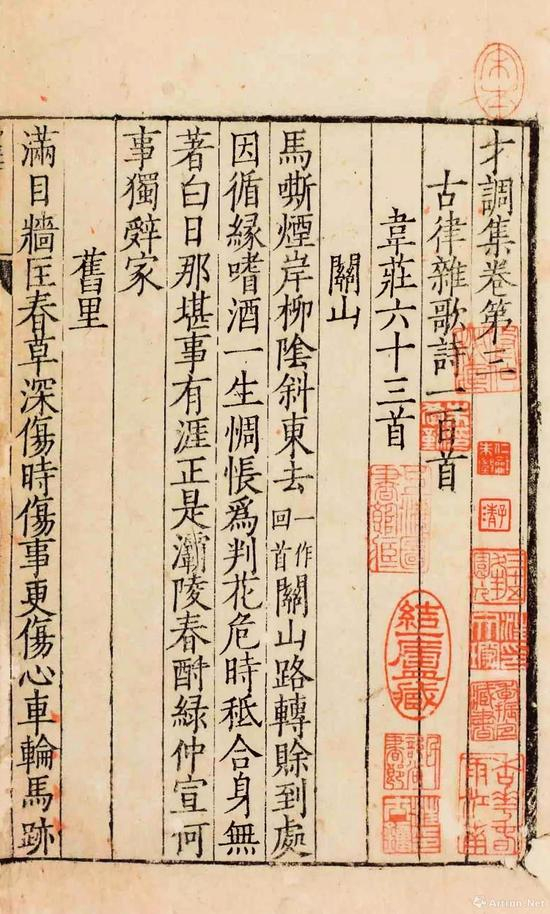 才調集卷第三
古律雜歌詩一百首
韋莊六十三首
關山
馬嘶煙岸柳陰斜東去一作回首關山路轉賒到處
因循緣嗜酒一生惆悵爲判花危時秪合身無
著白日那堪事有涯正是灞陵春酎綠仲宣何
事獨辤家
舊里
滿目牆匡春草深傷時傷事更傷心車輪馬跡
結一廬藏
Artron.Net